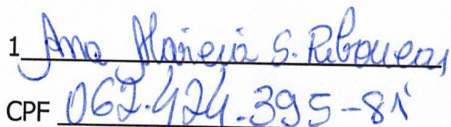 1 Ana Márcia S. Rebouças
CPF 062.424.395-81